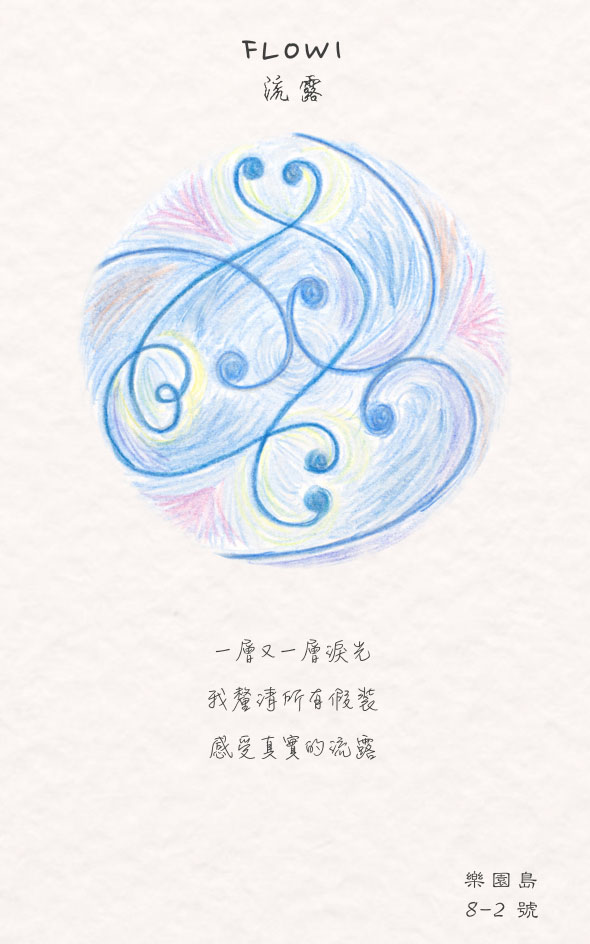 FLOWI
流露
一層又一層淚光
我釐清所有假裝
感受真實的流露
樂園島
8-2 號